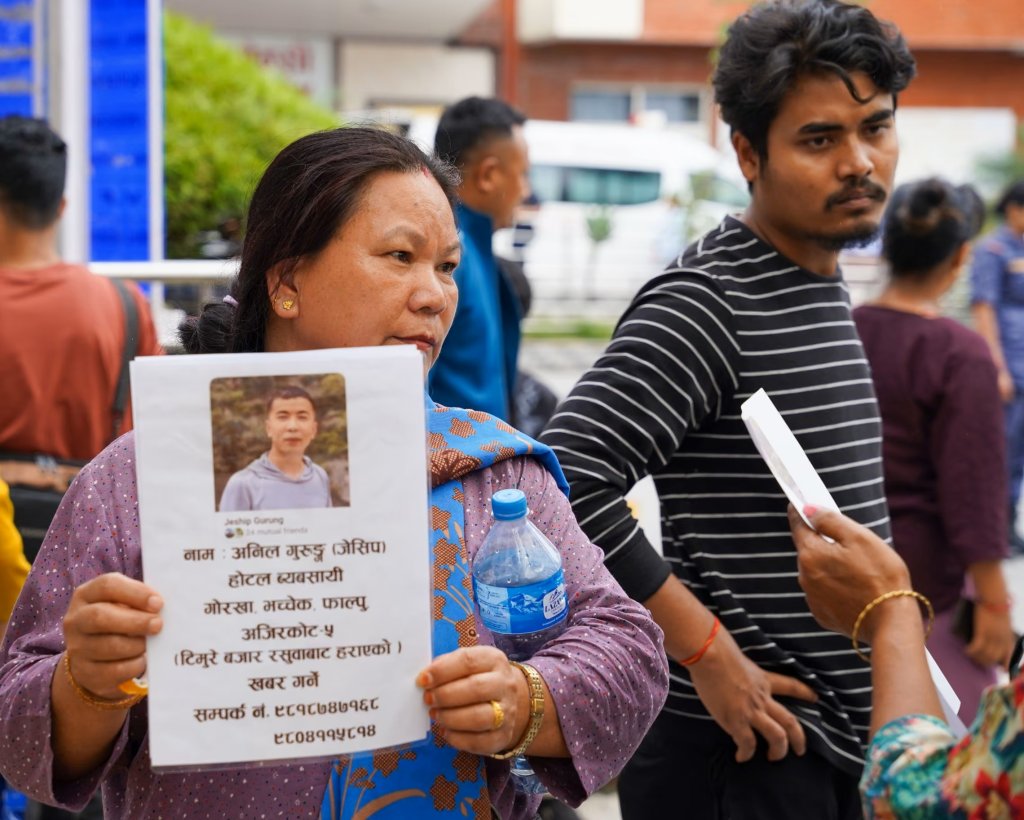 Jeship Gurung
24 mutual friends
नाम : अनिल गुरुङ्ग (जेसिप)
होटल ब्यबसायी
गोरखा, मच्चेक, फाल्पु,
अजिरकोट-५
(टिमुरे बजार रसुवाबाट हराएको )
खबर गर्ने
सम्पर्क नं. ९८१८७४७१६८
९८०४११५८१४